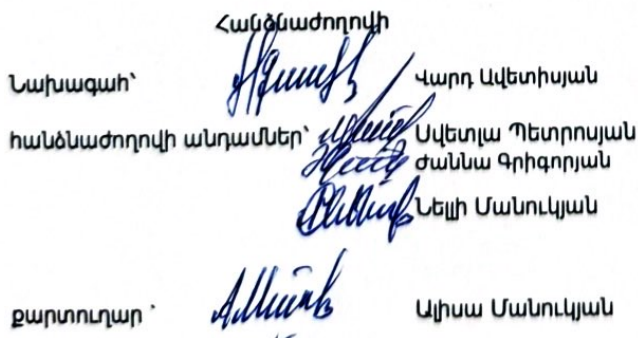 Հանձնաժողովի
Նախագահ՝ Վարդ Ավետիսյան
հանձնաժողովի անդամներ՝ Սվետլա Պետրոսյան
Ժաննա Գրիգորյան
Նելլի Մանուկյան
քարտուղար ՝ Ալիսա Մանուկյան